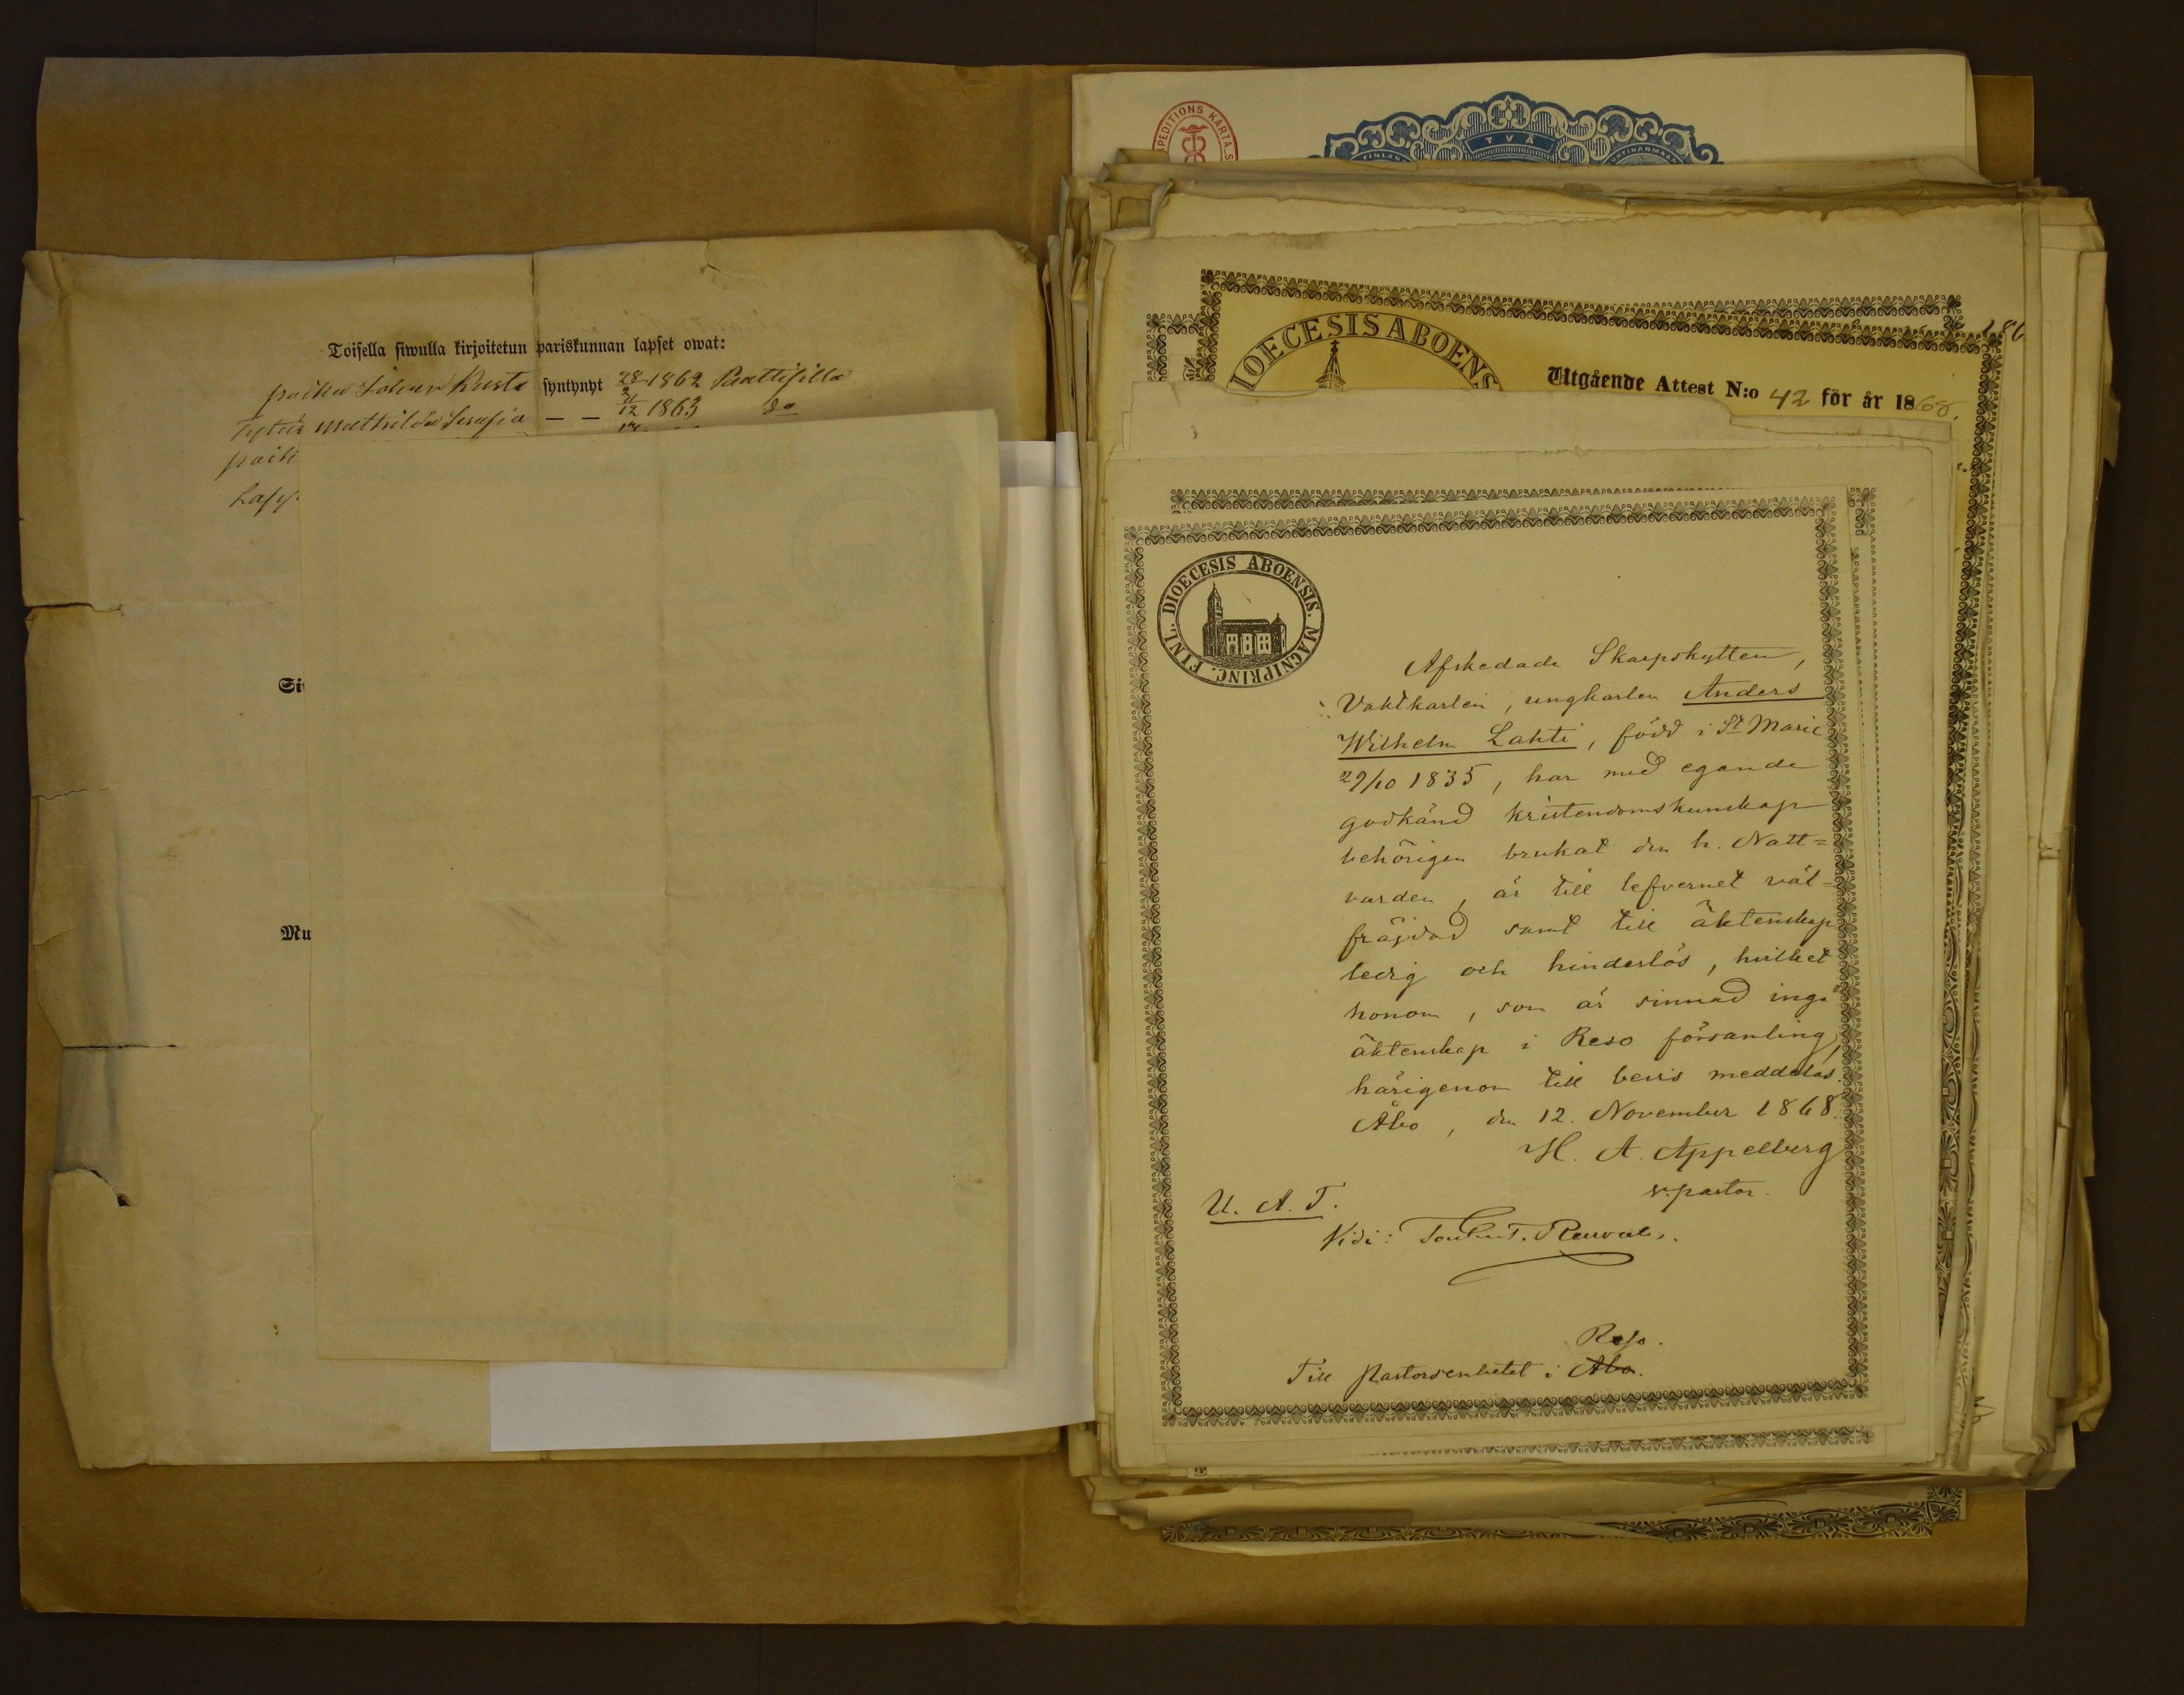 Toisella siwulla kirjoitetun pariskunnan lapset owat:
poika Johan Kusta syntynyt 28/2 1862 Paattisilla
Tytär Mathilda Serafia — — 11/12 1863 do
poik
Si
Mu
PEDITIONS KARTA.S
TVÅ
FINLAN
IOECESIS ABOENS
Utgående Attest N:o 42 för år 1868.
186
FINL. DIOECESIS ABOENSIS. MAGNIPRINC.
Afskedade Skarpskytten,
Vaktkarlen, ungkarlen Anders
Wilhelm Lahti, född i St Marie
29/10 1835, har med egande
godkänd kristendomskunskap
behörigen brukat den h. Natt=
varden, är till lefvernet väl=
fräjdad samt till äktenskap
ledig och hinderlös, hvilket
honom, som är sinnad ingå
äktenskap i Reso församling,
härigenom till bevis meddelas.
Åbo, den 12. November 1868.
H. A. Appelberg
v. pastor.
U. A. T.
Vidi:
Reso.
Till Pastorsembetet i Åbo.